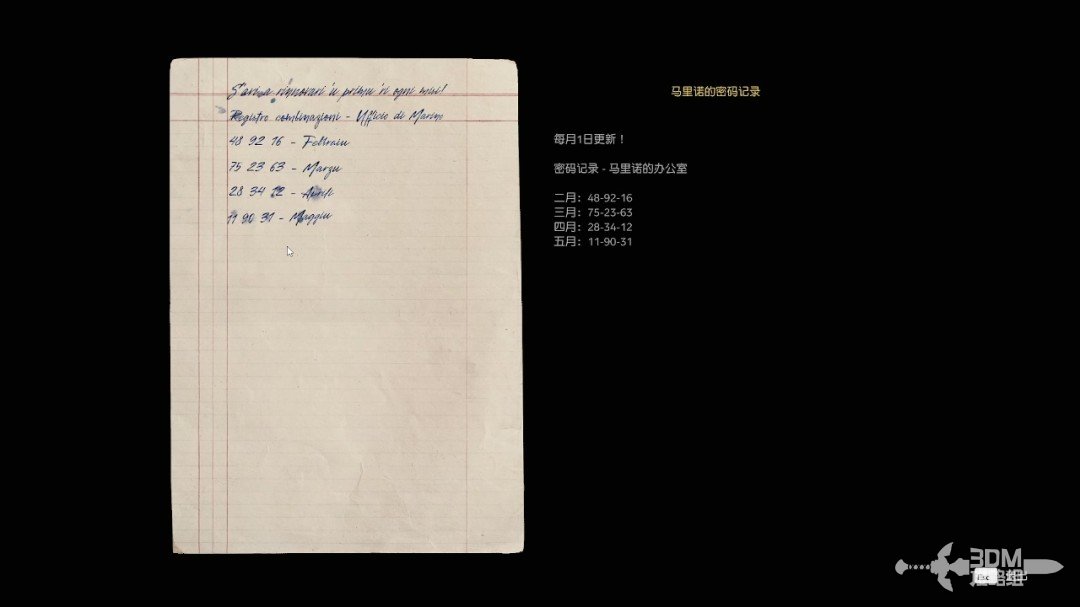 S'avi a rinnovari u primu ri ogni misi!
Registro combinazioni - Ufficio di Marino
48 92 16 - Febbraiu
75 23 63 - Marzu
28 34 12 - Aprili
11 90 31 - Maggiu
马里诺的密码记录
每月1日更新！
密码记录 - 马里诺的办公室
二月：48-92-16
三月：75-23-63
四月：28-34-12
五月：11-90-31
3DM
攻略组
Esc